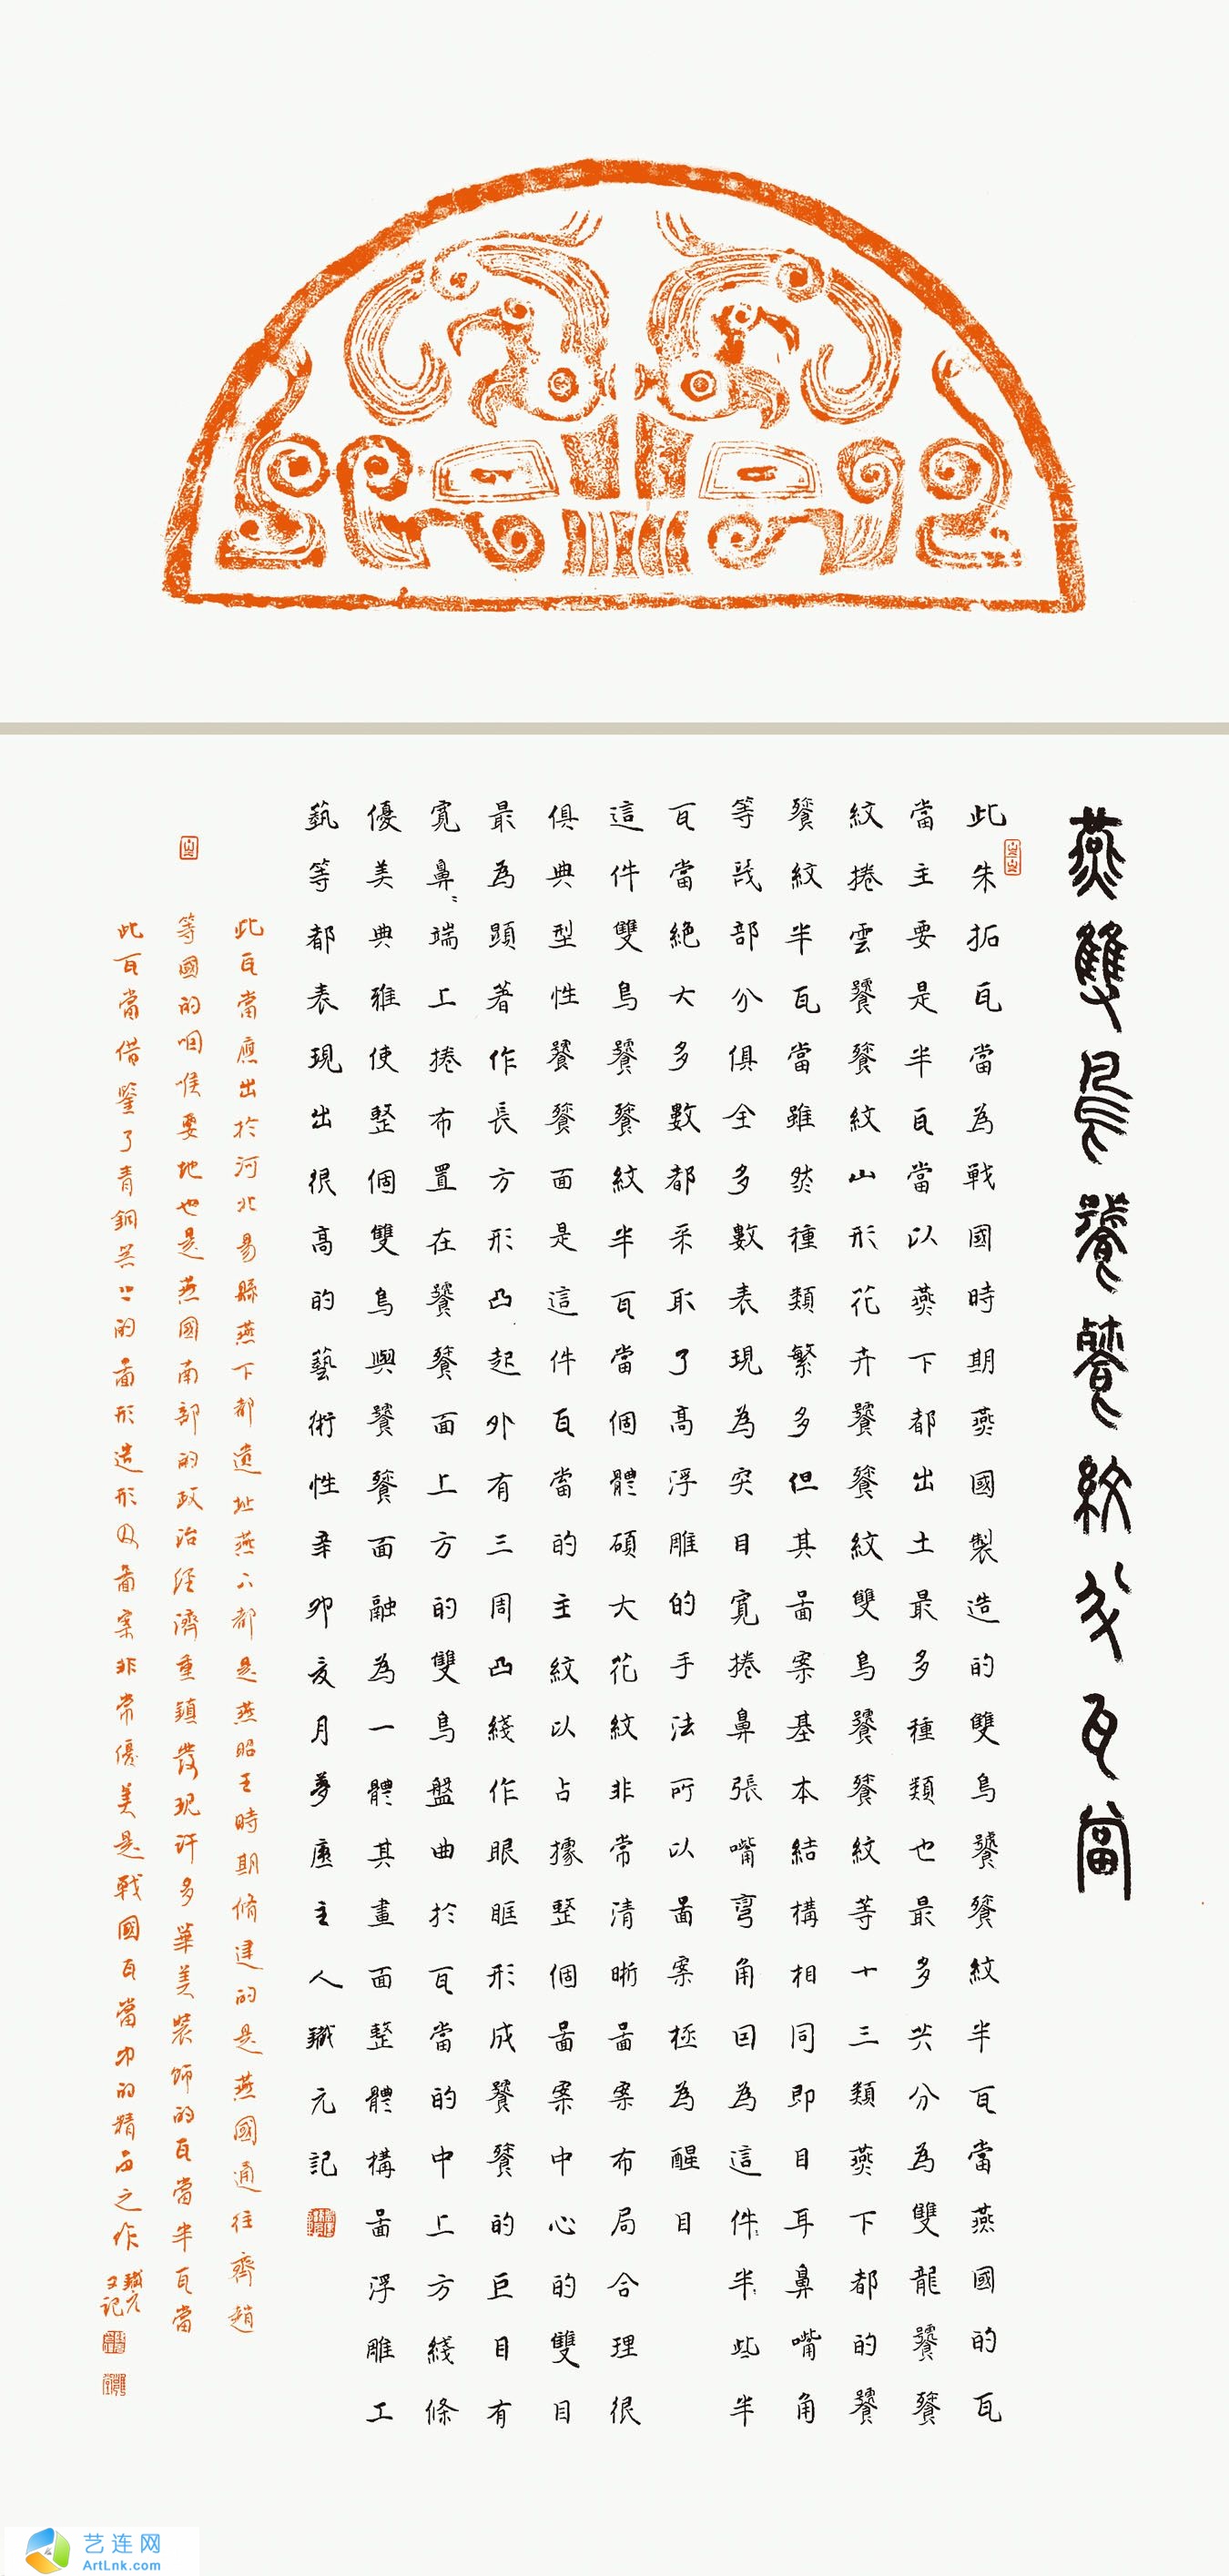 燕雙鳥饕餮紋半瓦當
此朱拓瓦當為戰國時期燕國製造的雙鳥饕餮紋半瓦當燕國的瓦
當主要是半瓦當以燕下都出土最多種類也最多共分為雙龍饕餮
紋捲雲饕餮紋山形花卉饕餮紋雙鳥饕餮紋等十三類燕下都的饕
餮紋半瓦當雖然種類繁多但其圖案基本結構相同即目耳鼻嘴角
等幾部分俱全多數表現為突目寬捲鼻張嘴彎角因為這件半些半
瓦當絕大多數都采取了高浮雕的手法所以圖案極為醒目
這件雙鳥饕餮紋半瓦當個體碩大花紋非常清晰圖案布局合理很
俱典型性饕餮面是這件瓦當的主紋以占據整個圖案中心的雙目
最為顯著作長方形凸起外有三周凸綫作眼眶形成饕餮的巨目有
寬鼻鼻端上捲布置在饕餮面上方的雙鳥盤曲於瓦當的中上方綫條
優美典雅使整個雙鳥與饕餮面融為一體其畫面整體構圖浮雕工
藝等都表現出很高的藝術性辛卯亥月夢廬主人鐵元記
此瓦當應出於河北易縣燕下都遺址燕下都是燕昭王時期脩建的是燕國通往齊趙
等國的咽喉要地也是燕國南部的政治經濟重鎮發現許多華美裝飾的瓦當半瓦當
此瓦當借鑒了青銅器上的圖形造形及圖案非常優美是戰國瓦當中的精品之作
鐵元
又記
艺连网
ArtLnk.com